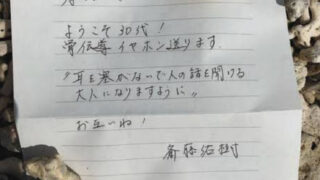 ようこそ30代！
骨伝導イヤホン送ります
"耳を塞がないで人の話を聞ける
大人になりますように"
お互いね！
斎藤佑樹